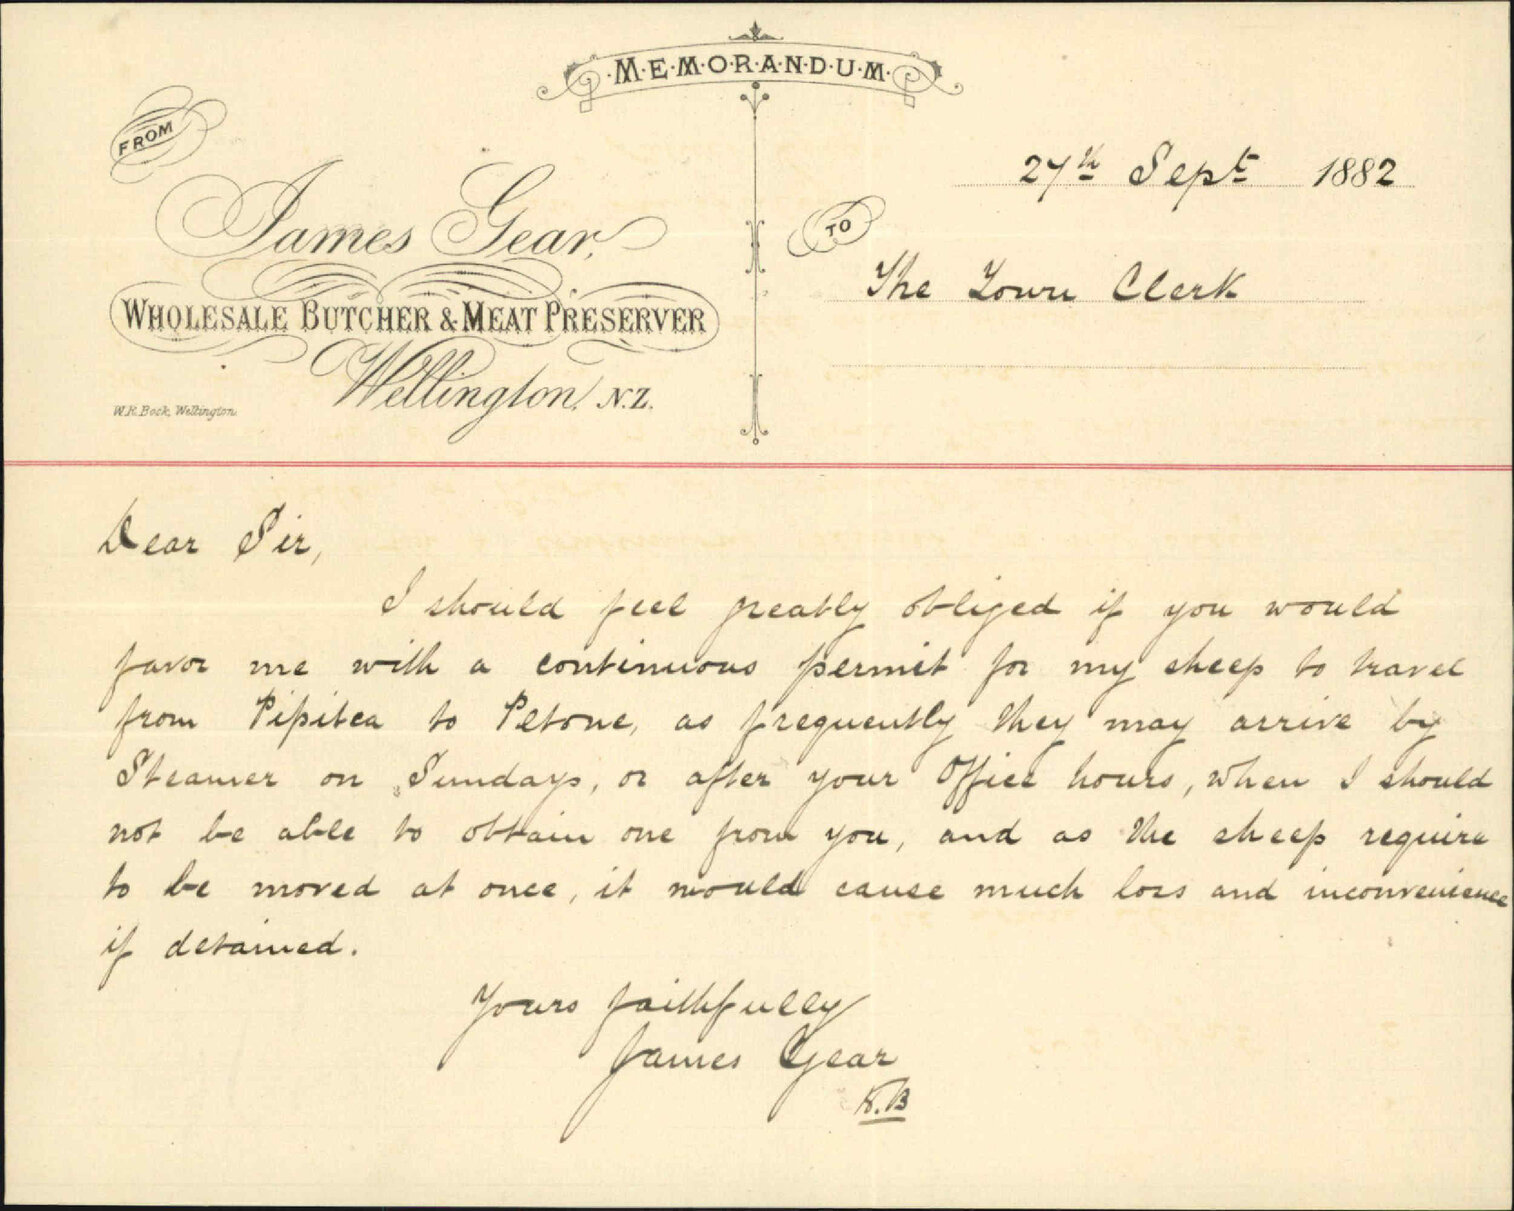 MEMORANDUM
FROM
James Gear,
WHOLESALE BUTCHER & MEAT PRESERVER
Wellington, N.Z.
W.R. Bock, Wellington.
27th Sept 1882
TO
The Town Clerk
Dear Sir,
I should feel greatly obliged if you would
favor me with a continuous permit for my sheep to travel
from Pipitea to Petone, as frequently they may arrive by
Steamer on Sundays, or after your Office hours, when I should
not be able to obtain one from you, and as the sheep require
to be moved at once, it would cause much loss and inconvenience
if detained.
Yours faithfully
James Gear